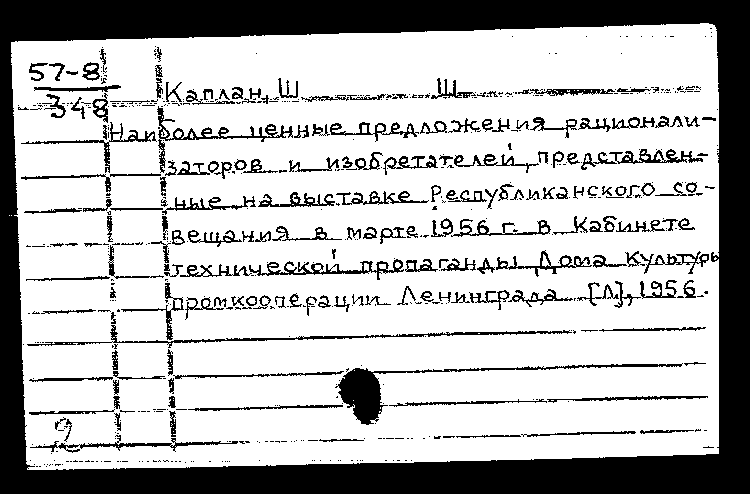 57-8
348
Каплан, Ш Ш
Наиболее ценные предложения рационали-
заторов и изобретателей, представлен-
ные на выставке Республиканского со-
вещания в марте 1956 г. в Кабинете
технической пропаганды Дома Культуры
промкооперации Ленинграда [Л], 1956.
2